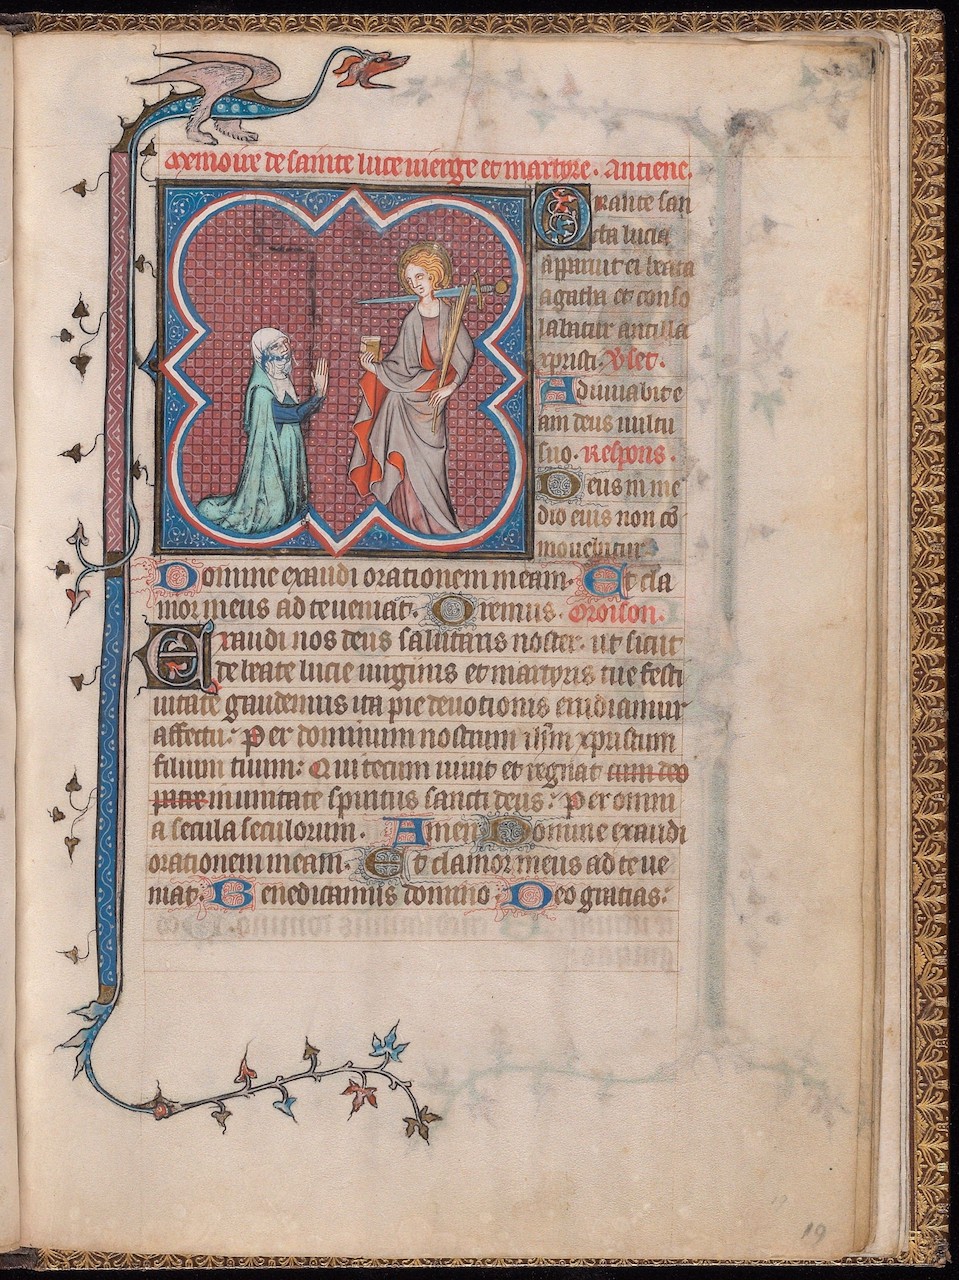 Memoire de sainte luce vierge et martyre. Antiene.
Orante san
cta lucia
apparuit ei beata
agatha et conso
labatur ancilla
xpristi. Vset.
Adiuuabit e
am deus uultu
suo. Respons.
Deus in me
dio eius non cō
mouebitur
Domine exaudi orationem meam. Et cla
mor meus ad te ueniat. Oremus. Oroison.
Exaudi nos deus salutaris noster. ut sicut
de beate lucie uirginis et martyris tue festi
uitate gaudemus ita pie deuotionis erudiamur
affectu. Per dominum nostrum ihm xpristum
filium tuum: Qui tecum uiuit et regnat cum deo
patre in unitate spiritus sancti deus. Per omni
a secula seculorum. Amen Domine exaudi
orationem meam. Et clamor meus ad te ue
niat. Benedicamus domino. Deo gratias.
19
19